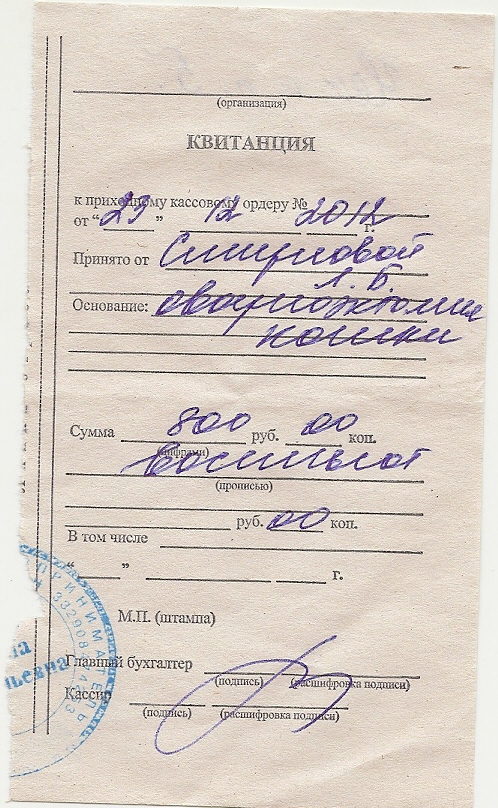 (организация)
КВИТАНЦИЯ
к приходному кассовому ордеру №
от “29” 12 2012 г.
Принято от Смирновой
Л. Б.
Основание: овариоэктомия
кошки
Сумма 800 руб. 00 коп.
(цифрами)
Восемьсот
(прописью)
руб. 00 коп.
В том числе
“ ” г.
М.П. (штампа)
ПРИНИМАТЕЛЬ
Главный бухгалтер
(подпись) (расшифровка подписи)
Кассир
(подпись) (расшифровка подписи)